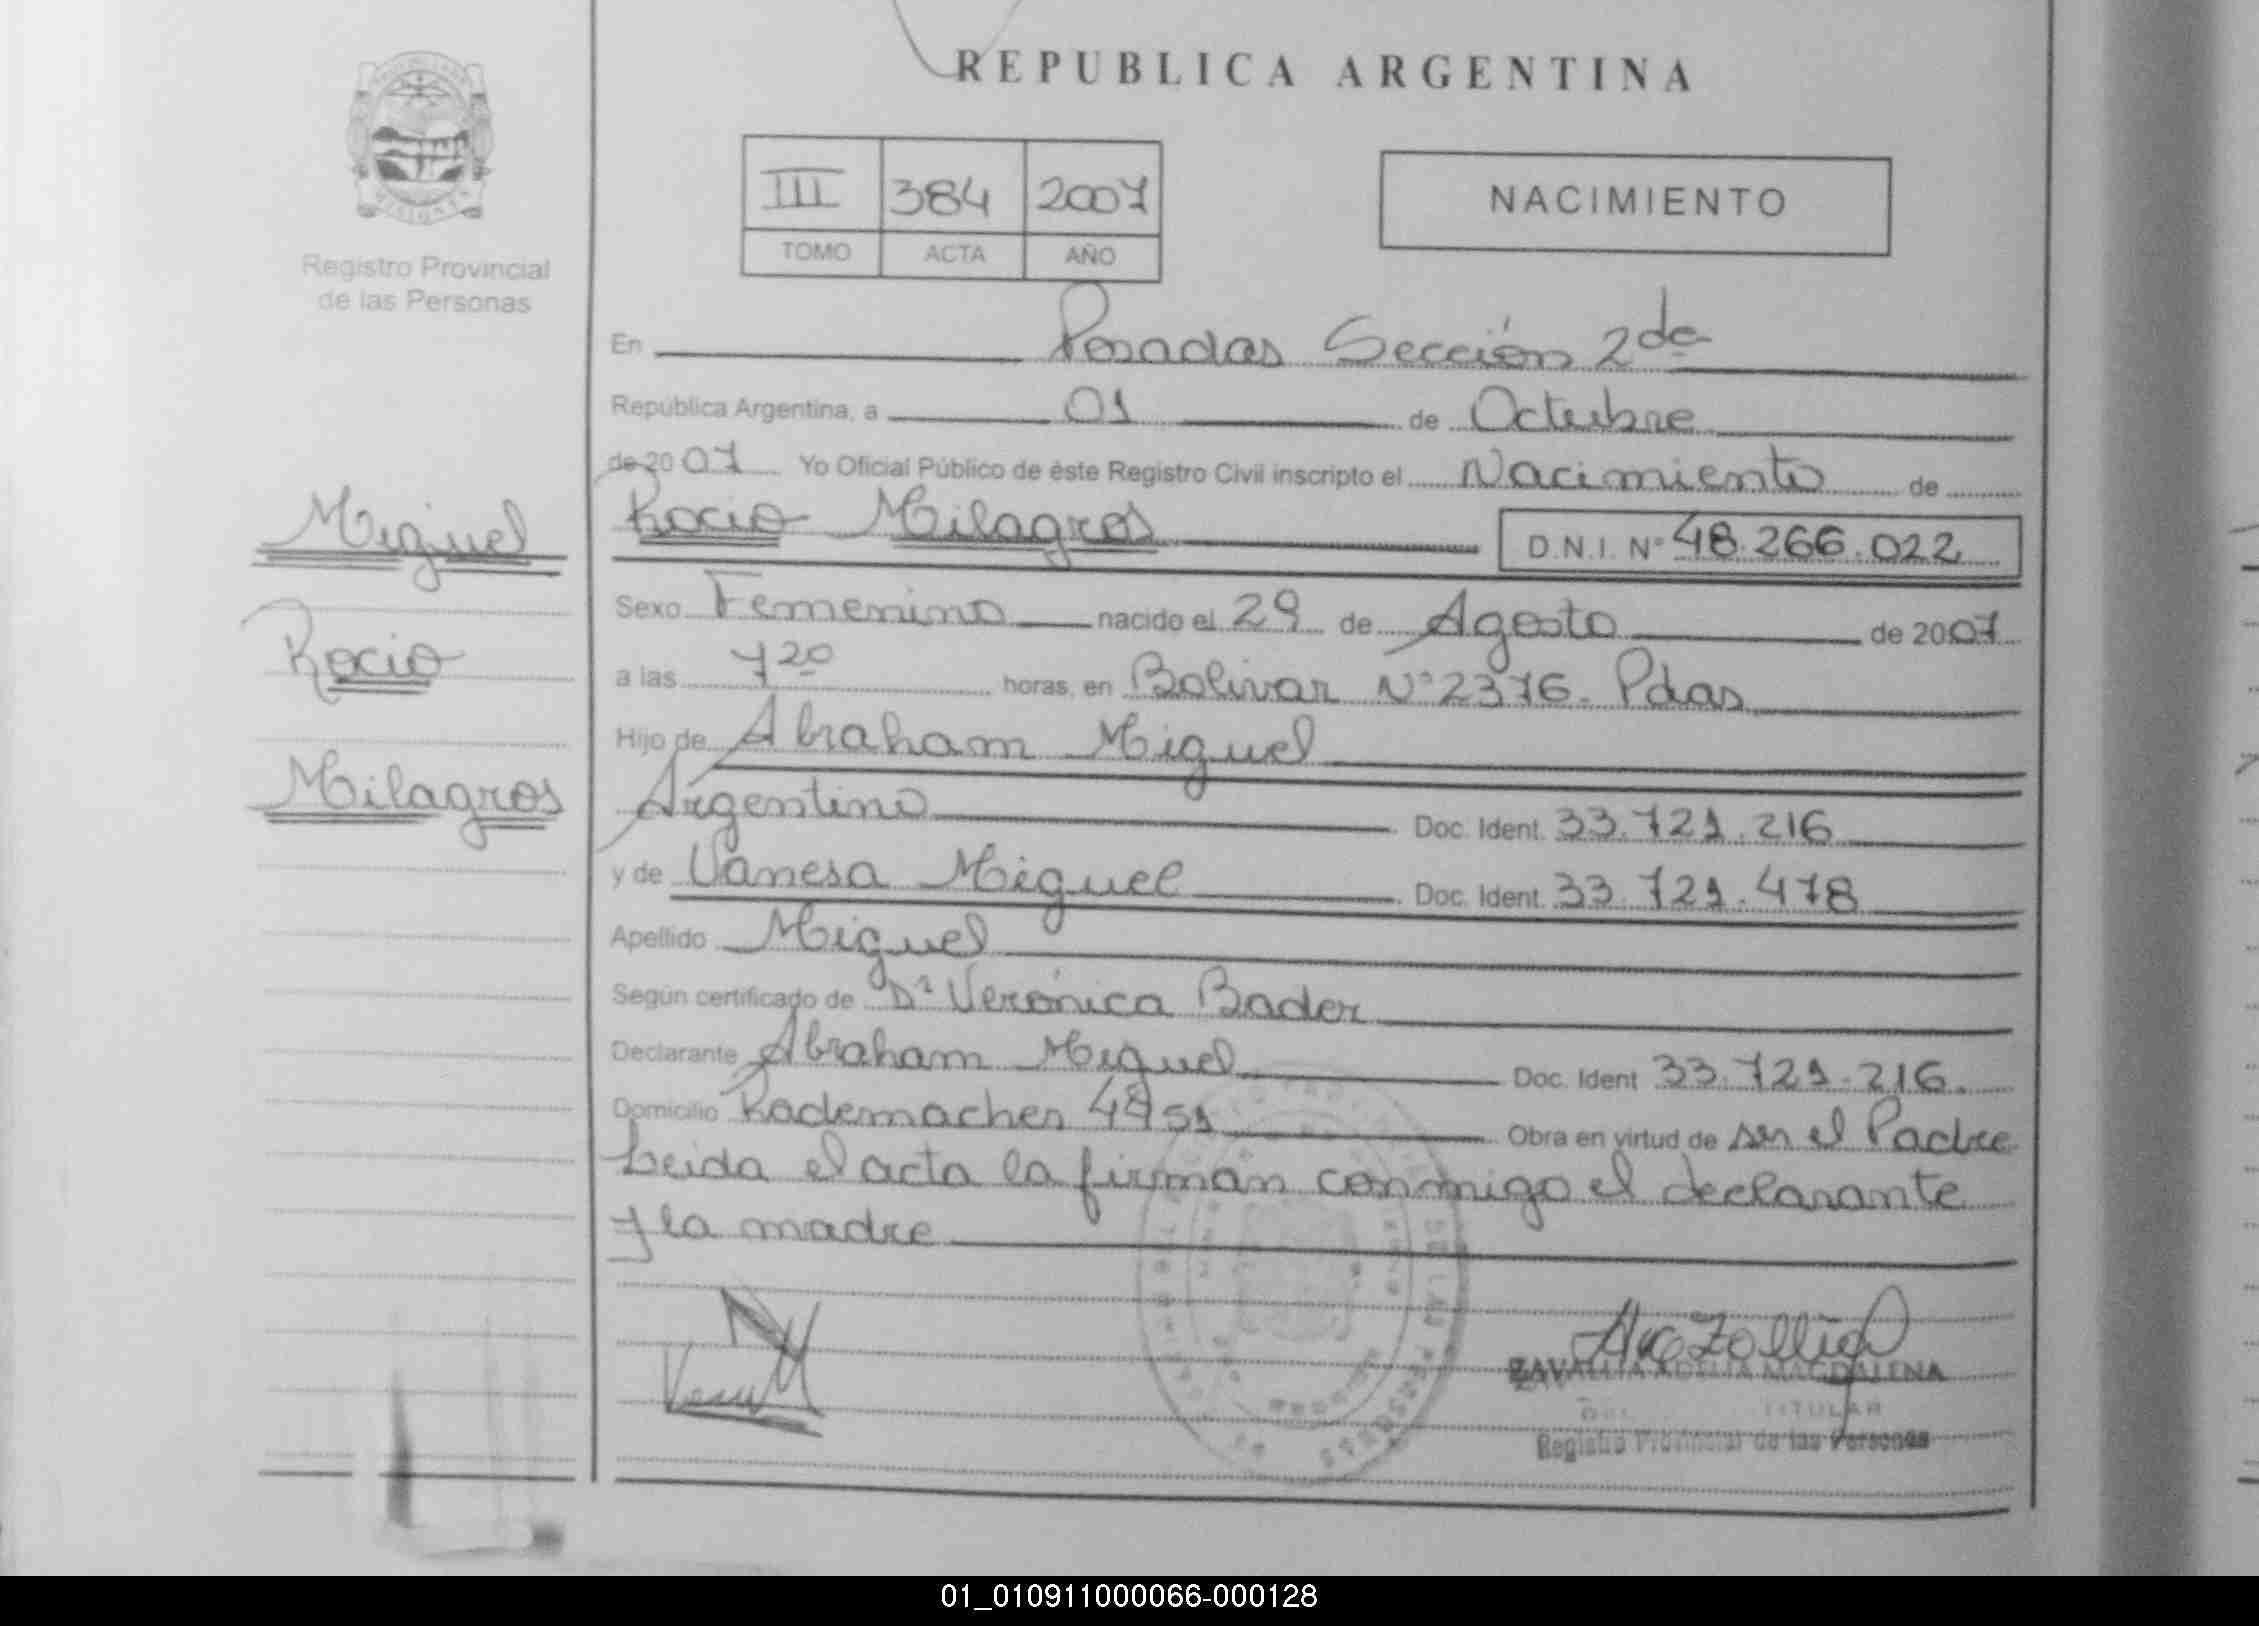 REPUBLICA ARGENTINA
III 384 2007
TOMO ACTA AÑO
NACIMIENTO
Registro Provincial
de las Personas
Miguel
Rocio
Milagros
En Posadas Sección 2da
República Argentina, a 01 de Octubre
de 2007 Yo Oficial Público de éste Registro Civil inscripto el Nacimiento de
Rocio Milagros D.N.I. Nº 48.266.022
Sexo Femenino nacido el 29 de Agosto de 2007
a las 7 20 horas, en Bolivar Nº 2376. Pdas
Hijo de Abraham Miguel
Argentino Doc. Ident. 33.721.216
y de Vanesa Miguel Doc. Ident. 33.721.478
Apellido Miguel
Según certificado de Dª Verónica Bader
Declarante Abraham Miguel Doc. Ident 33.721.216.
Domicilio Rademacher 4851 Obra en virtud de ser el Padre
Leida el acta la firman conmigo el declarante
y la madre
MAGDALENA
TITULAR
Registro Provincial de las Personas
01_010911000066-000128